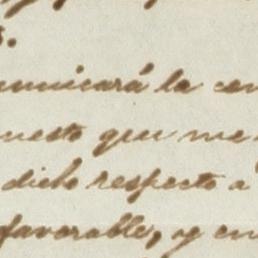 s.
unicará la con
uesto que me
dicho respecto a
favorable, y en